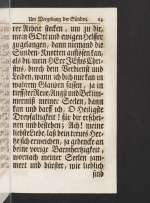 Um Vergebung der Sünden. 23
rer Arbeit stecken, um zu dir,
mein GOtt und ewigen Helffer
zu gelangen, dann niemand die
Sünden-Knotten auflösen kan,
als du, mein HErr JEsus Chri-
stus, durch dein Verdienst und
Leiden, wann ich dich nur kan in
wahrem Glauben fassen, ja in
tiefster Reue, Angst und Beküm-
mernüß meiner Seelen, dann
kan und darff ich, O Heiligste
Dreyfaltigkeit! für dir erschei-
nen und bestehen; Ach! meine
liebste Liebe, laß dein treues Her-
tze sich erweichen, ja gedenck an
deine vorige Barmhertzigkeit,
wornach meiner Seelen jam-
mert und dürstet, wie lieblich
sind